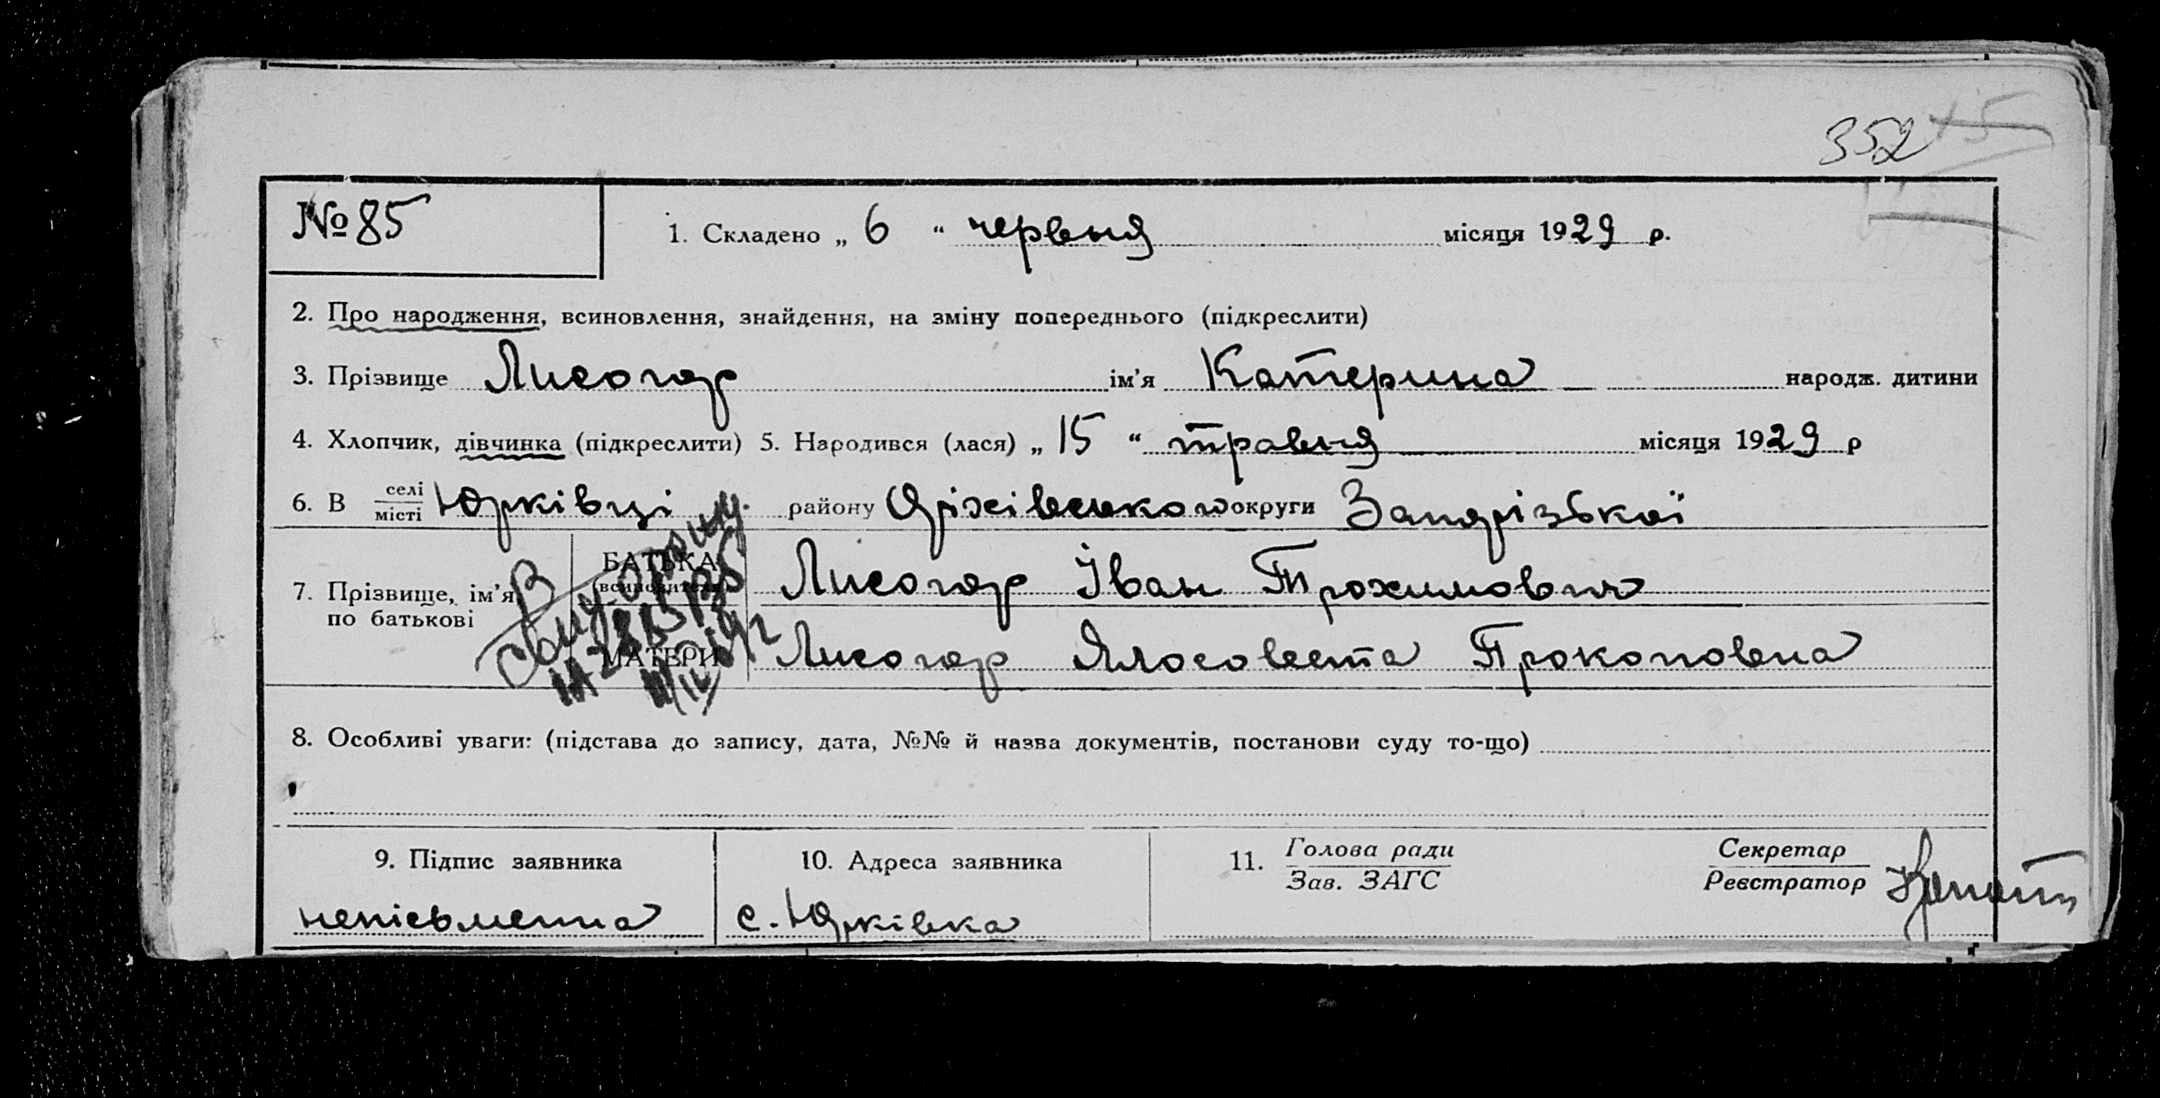 352 15
№ 85
1. Складено „ 6 “ червня місяця 1929 р.
2. Про народження, всиновлення, знайдення, на зміну попереднього (підкреслити)
3. Прізвище Лисогор ім'я Катерина народж. дитини
4. Хлопчик, дівчинка (підкреслити) 5. Народився (лася) „ 15 “ травня місяця 1929 р
6. В селі місті Юрківці району Оріхівського округи Запорізької
7. Прізвище, ім'я по батькові
БАТЬКА всиновителя Лисогор Іван Трохимович
МАТЕРИ Лисогор Ялосовета Прокоповна
8. Особливі уваги: (підстава до запису, дата, №№ й назва документів, постанови суду то-що)
9. Підпис заявника 10. Адреса заявника 11. Голова ради Зав. ЗАГС Секретар Реєстратор
неписьменна с. Юрківка